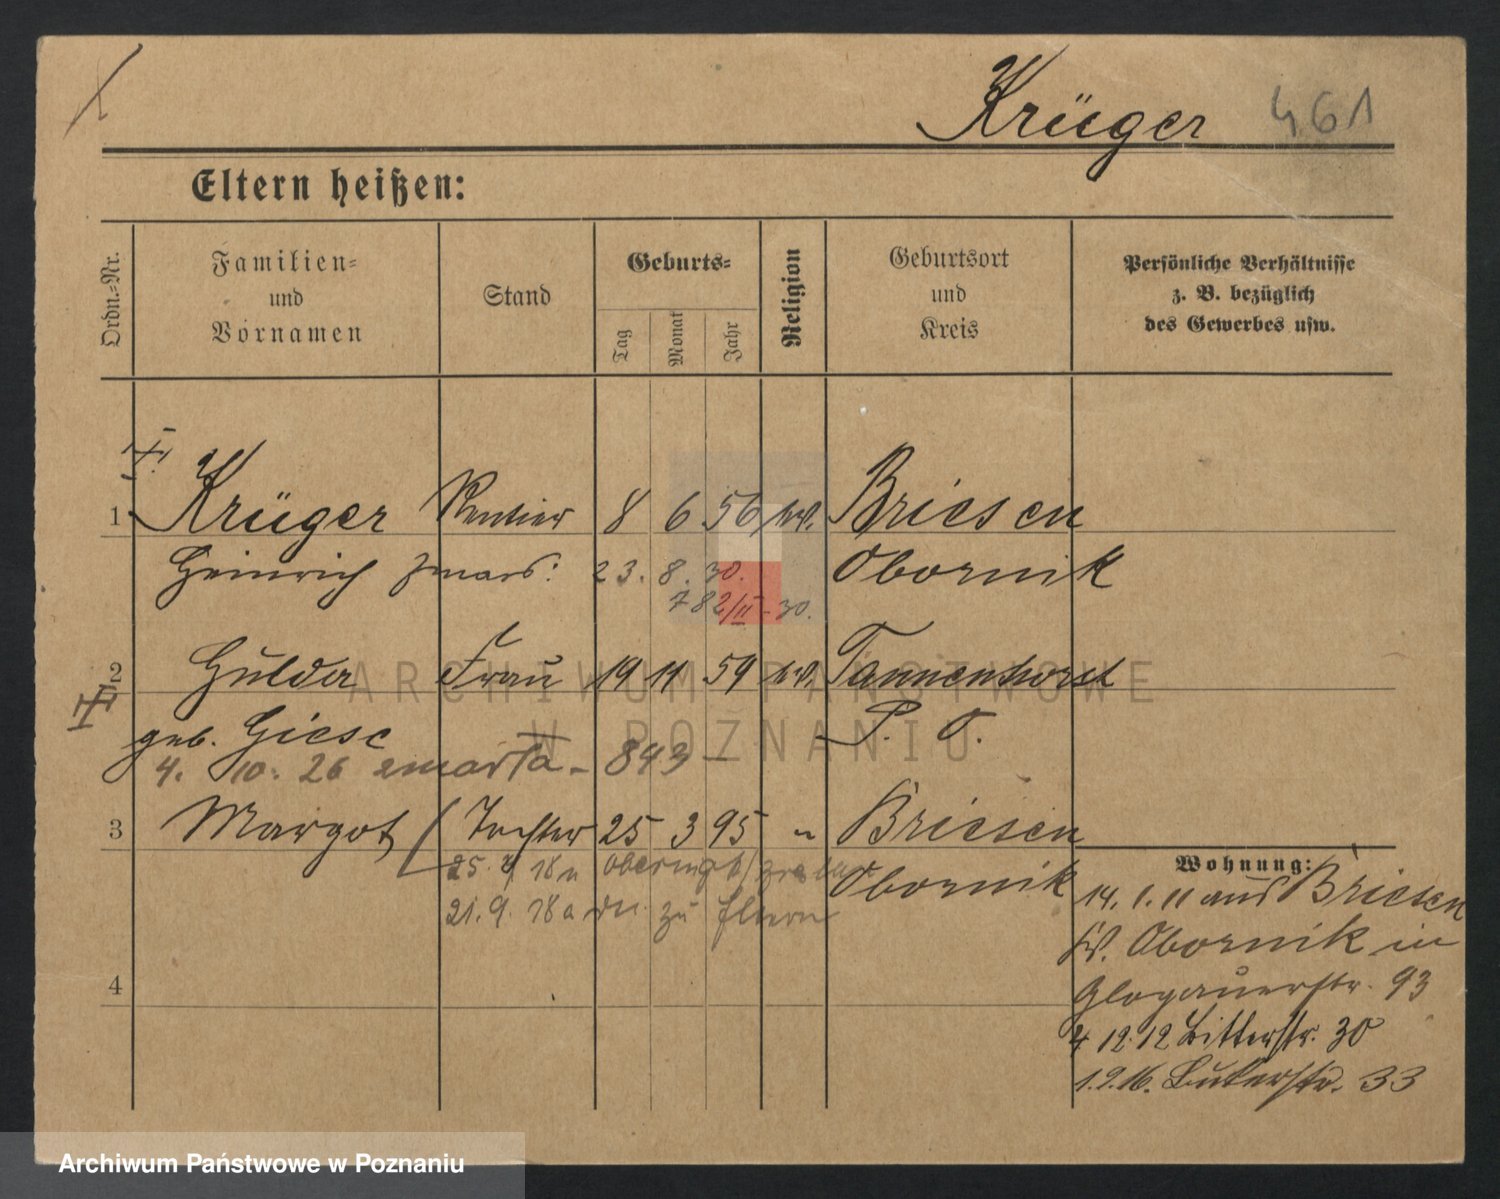 Krüger 461
Eltern heißen:
Ordn.-Nr.
Familien-
und
Vornamen
Stand
Geburts-
Tag
Monat
Jahr
Religion
Geburtsort
und
Kreis
Persönliche Verhältnisse
z. B. bezüglich
des Gewerbes usw.
1 Krüger Rentier 8 6 56 ev. Briesen
Heinrich zmarł: 23. 8. 30. Obornik
782/II-30.
2 Hulda Frau 19 11 59 ev. Tannenhorst
geb. Giese P. O.
4. 10. 26 zmarła - 843 -
3 Margot Tochter 25 3 95 " Briesen
Obornik
25. 18 n
21. 9. 18 a zu Eltern
4
Wohnung:
14. 1. 11 aus Briesen
Kr. Obornik in
Glogauerstr. 93
4 12. 12 Ritterstr. 30
1. 9. 16. 33
ARCHIWUM PAŃSTWOWE
W POZNANIU
Archiwum Państwowe w Poznaniu